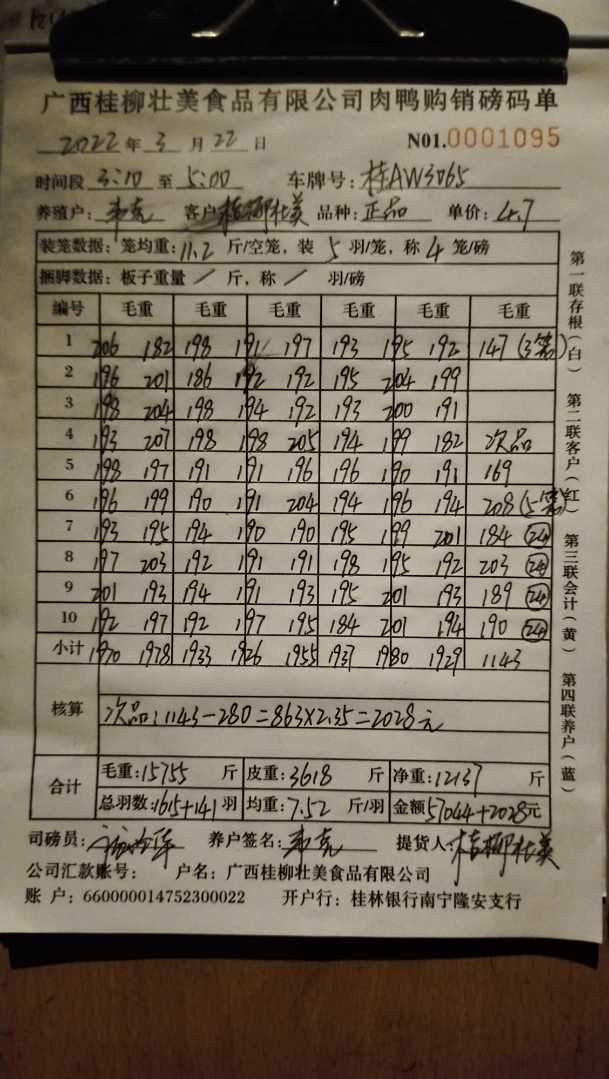 广西桂柳壮美食品有限公司肉鸭购销磅码单
2022年3月22日 N01.0001095
时间段 3:10 至 5:00 车牌号: 桂AW3065
养殖户: 韦克 客户 桂柳壮美 品种: 正品 单价: 4.7
装笼数据: 笼均重: 11.2 斤/空笼, 装 5 羽/笼, 称 4 笼/磅
捆脚数据: 板子重量 / 斤, 称 / 羽/磅
编号 毛重 毛重 毛重 毛重 毛重 毛重
1 206 182 198 191 197 193 195 192 147 (3笼)
2 196 201 186 192 192 195 204 199
3 198 204 198 194 192 193 200 191
4 193 207 198 198 205 194 199 182 次品
5 198 197 191 191 196 196 190 191 169
6 196 199 190 191 204 194 196 194 208 (5笼)
7 193 195 194 190 190 195 199 201 184 24
8 197 203 192 191 191 198 195 192 203 24
9 201 193 194 191 193 195 201 193 189 24
10 192 197 192 197 195 184 201 194 190 24
小计 1970 1978 1933 1926 1955 1937 1980 1929 1143
核算 次品: 1143-280=863×2.35=2028元
合计 毛重: 15755 斤 皮重: 3618 斤 净重: 12137 斤
总羽数: 1615+141 羽 均重: 7.52 斤/羽 金额 57044+2028元
司磅员: 养户签名: 韦克 提货人: 桂柳壮美
公司汇款账号: 户名: 广西桂柳壮美食品有限公司
账 户: 660000014752300022 开户行: 桂林银行南宁隆安支行
第一联存根(白) 第二联客户(红) 第三联会计(黄) 第四联养户(蓝)